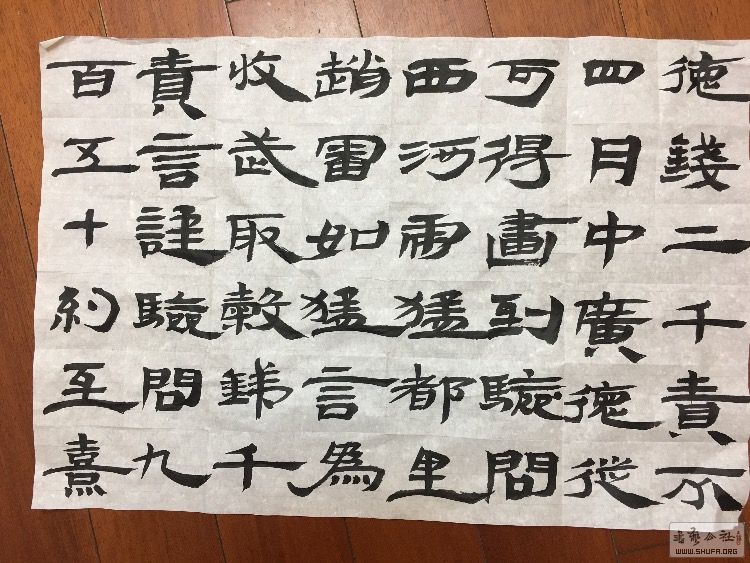 德錢二千責不
四月中廣德從
可得畫到驗問
西河雨猛都里
趙雷如猛言為
收武取穀千
責言謹驗問九
百五十約至熹
書藝公社
WWW.SHUFA.ORG